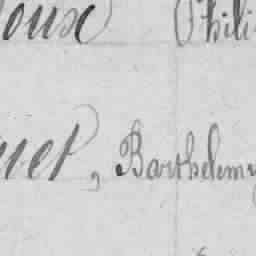 oux Phili
uet, Barthelemy